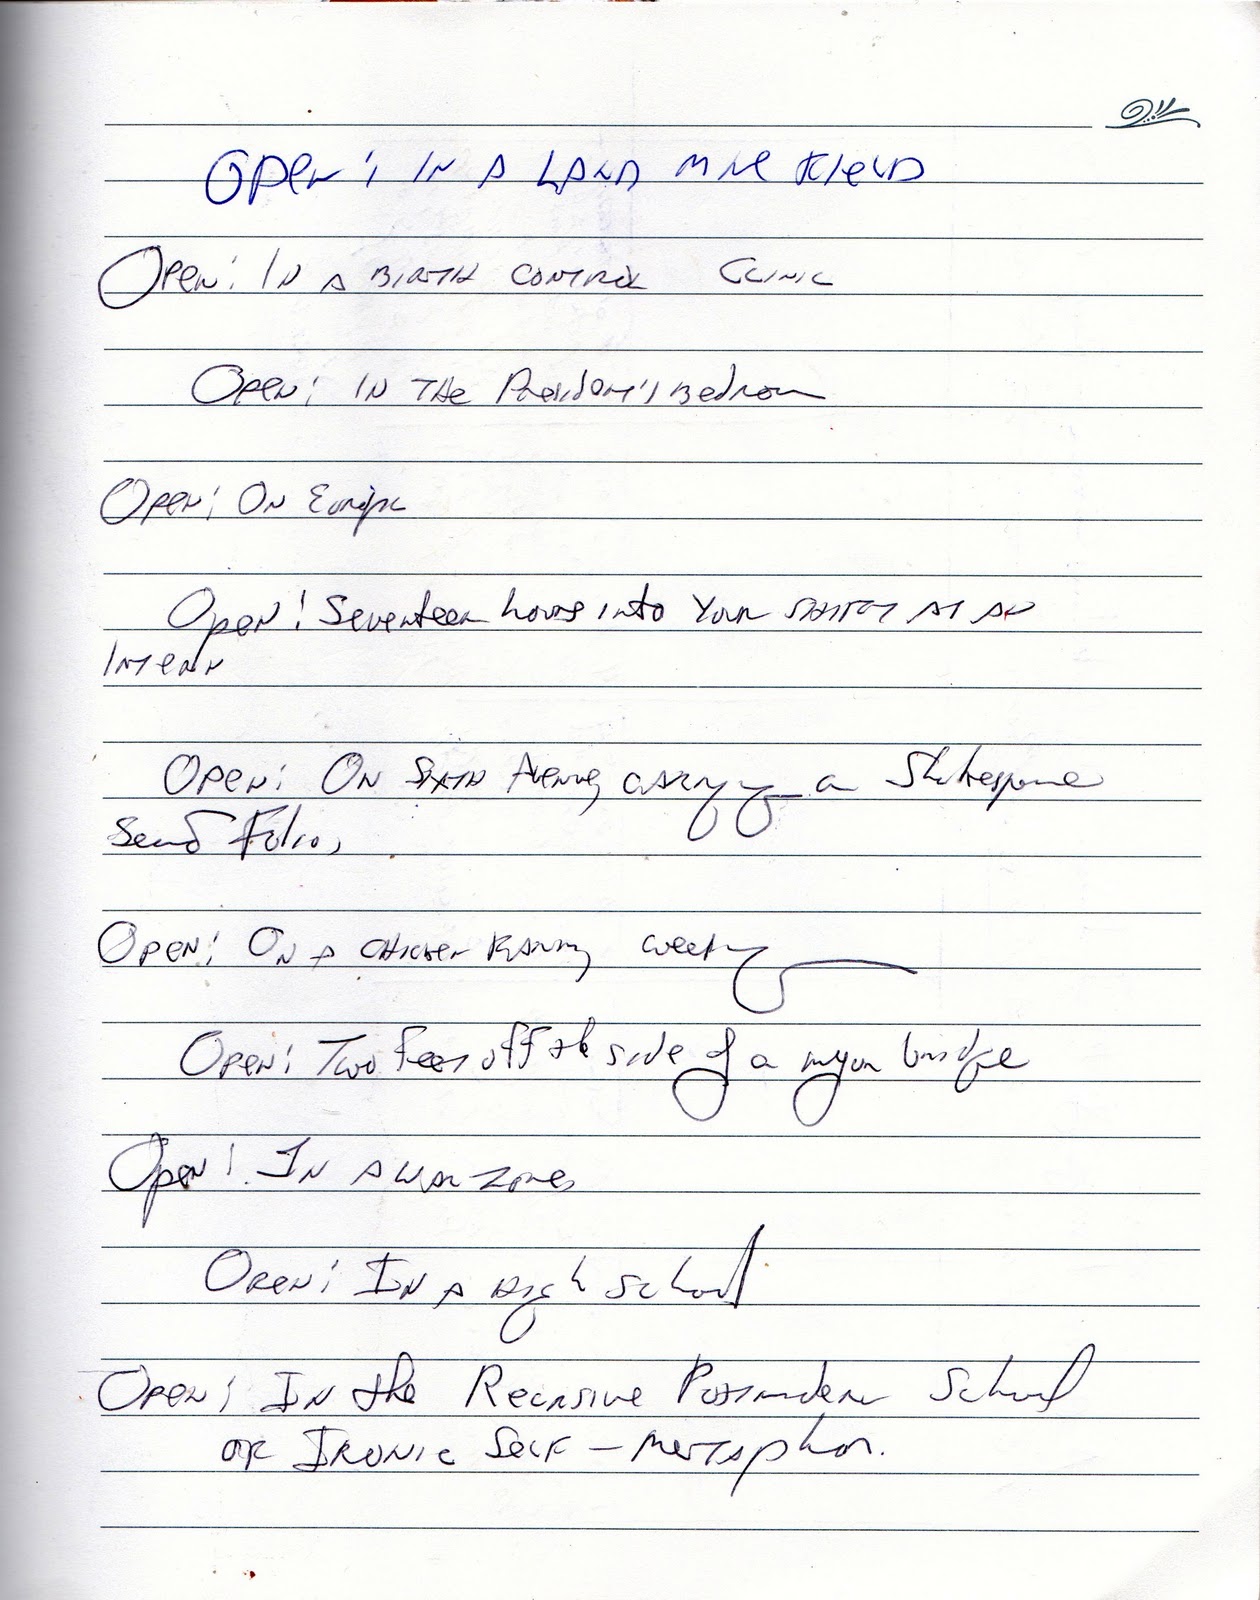 Open! In a Land Mine Field
Open! In a Birth Control Clinic
Open! In the President's Bedroom
Open! On Europa
Open! Seventeen hours into your shift as an
Intern
Open! On Sixth Avenue, carrying a Shakespeare
Folio,
Open! On a Chicken Farm
Open! Two feet off the side of a major bridge
Open! In a war zone,
Open! In a high school
Open! In the Recursive Postmodern School
of Ironic Self-Metaphor.